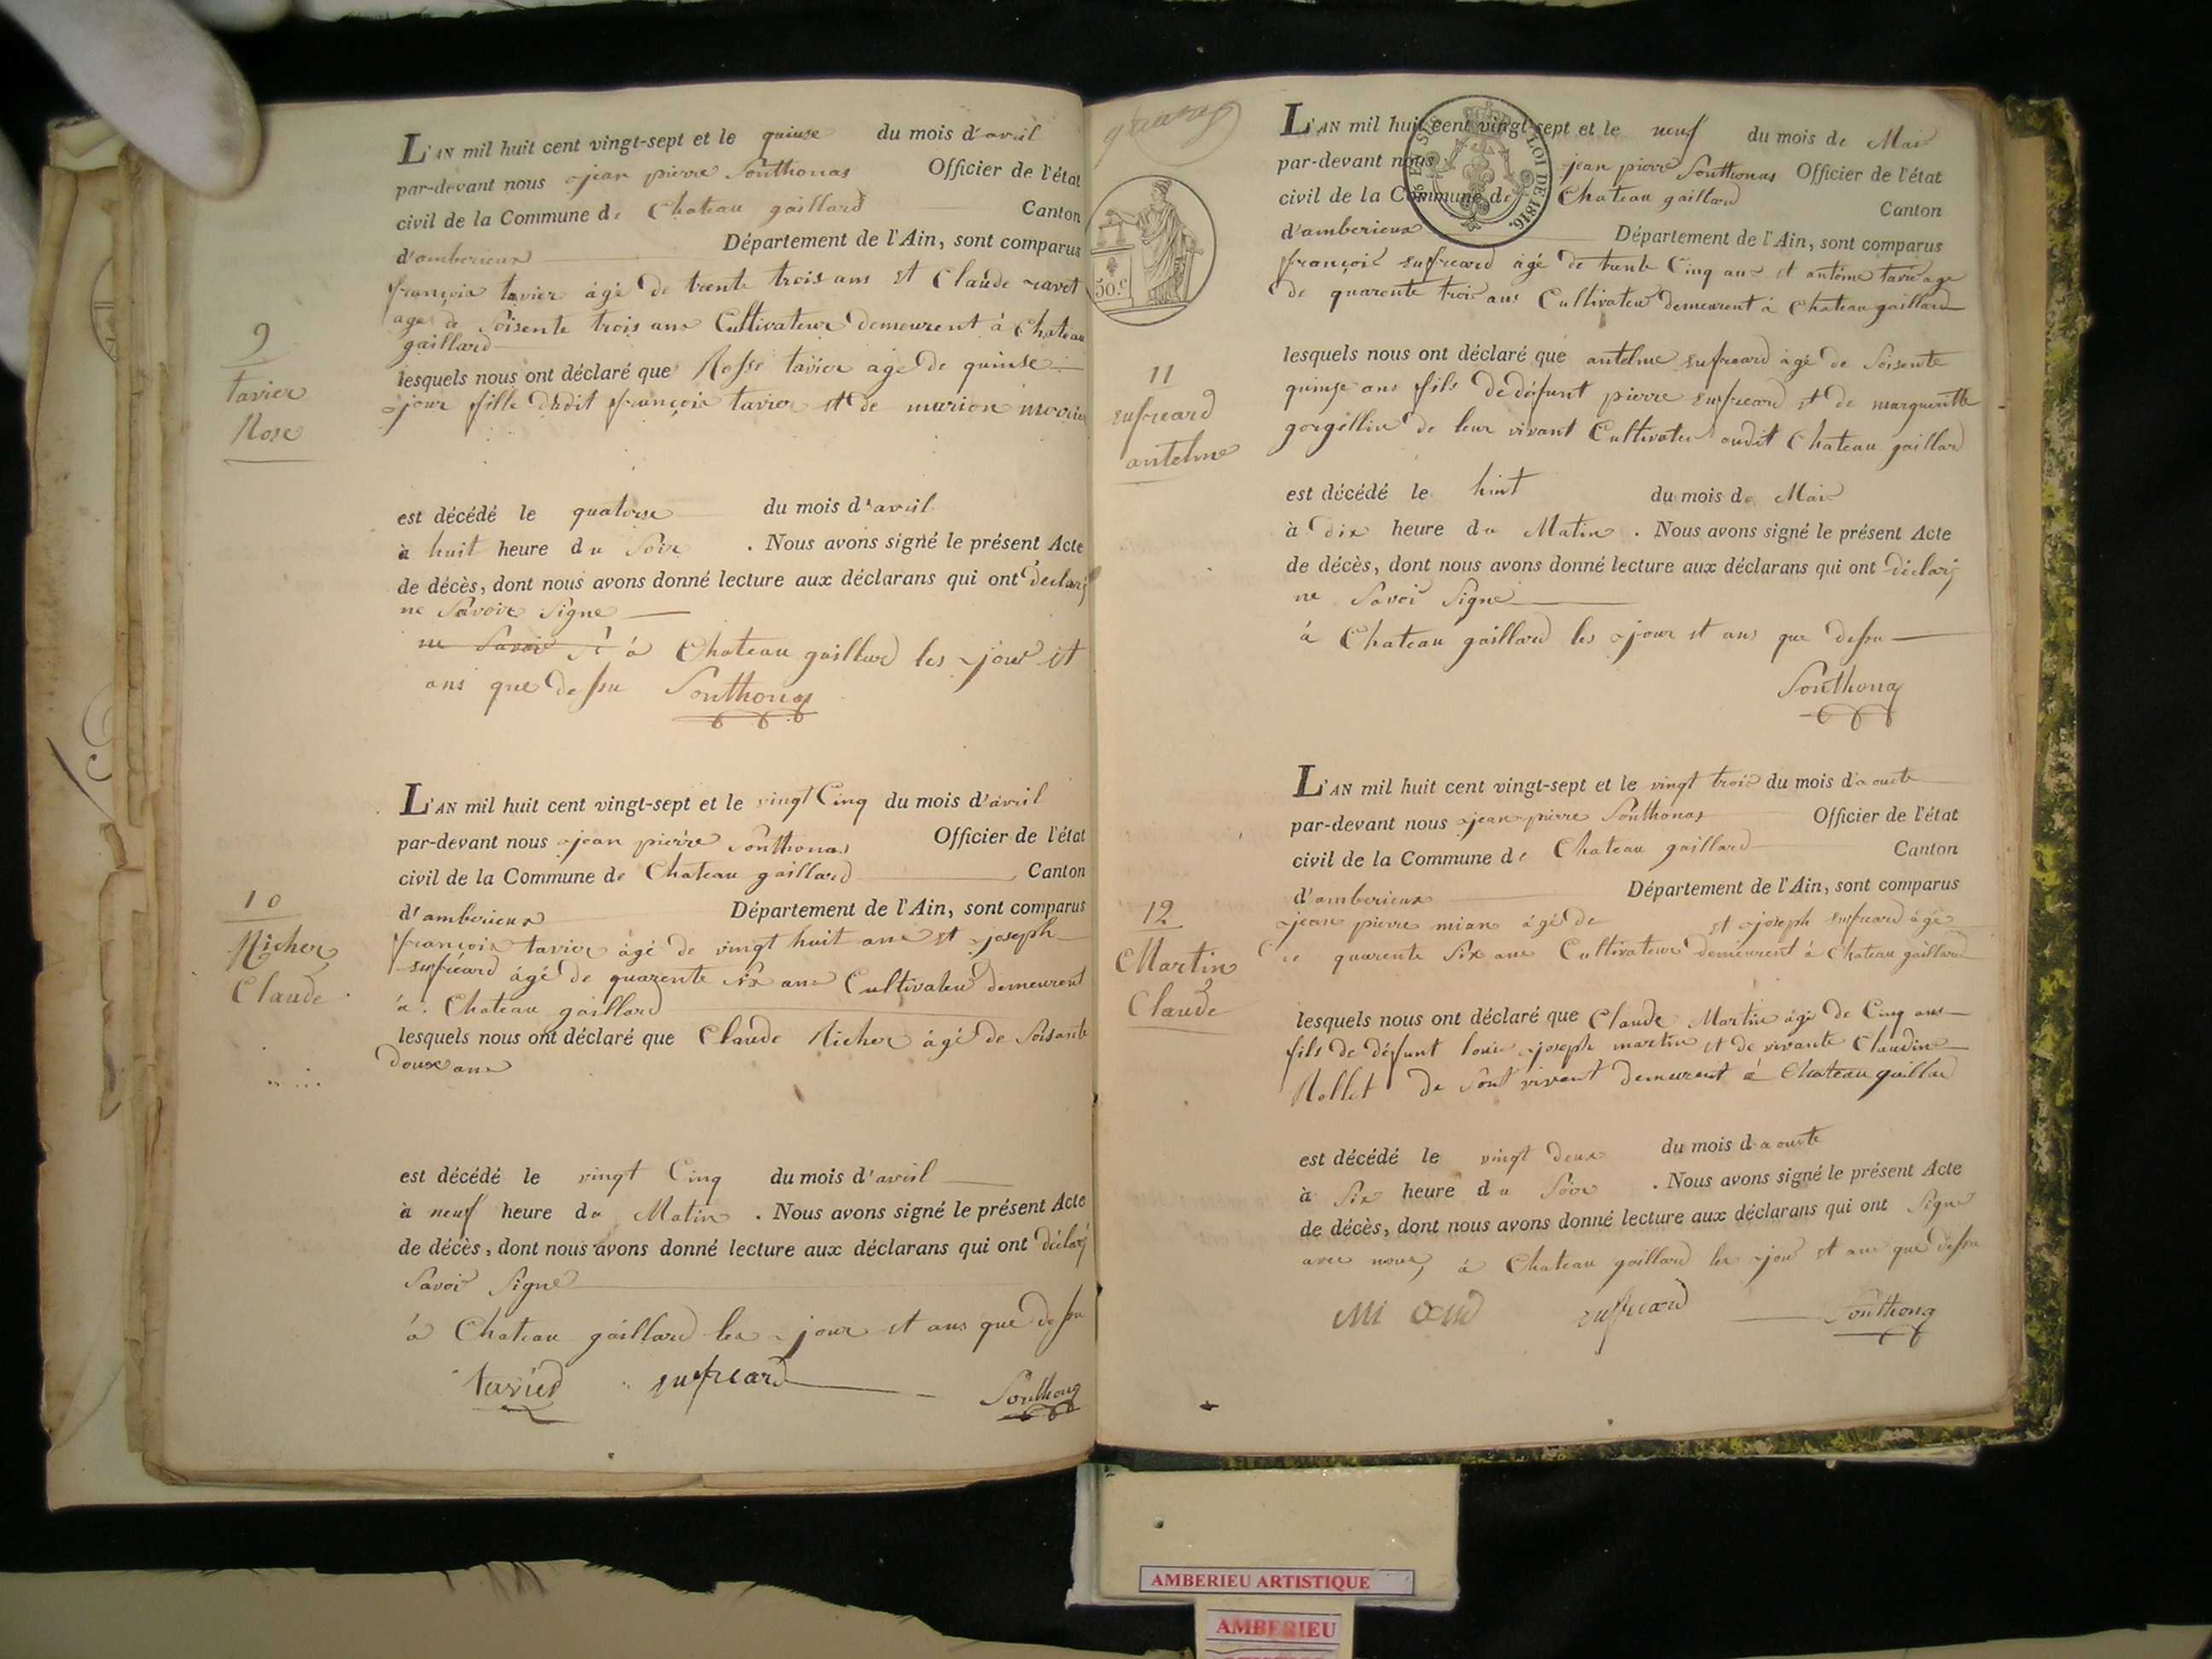 L'AN mil huit cent vingt-sept et le quinse du mois d'avril
par-devant nous jean pierre Sonthonas Officier de l'état
civil de la Commune de Chateau gaillard Canton
d'amberieux Département de l'Ain, sont comparus
françois tavier àgé de trente trois ans et Claude ravet
age de Soisente trois ans Cultivateur demeurent à Chateau
gaillard
9
tavier
Rose
lesquels nous ont déclaré que Rosse tavier àgé de quinse
jour fille dudit françois tavier et de marion
est décédé le quatorse du mois d'avril
à huit heure du Soir . Nous avons signé le présent Acte
de décès, dont nous avons donné lecture aux déclarans qui ont déclarj
ne Savoir Signe
ne Savoir Si à Chateau gaillard les jour et
ans que dessu Sonthonas
L'AN mil huit cent vingt-sept et le vingt Cinq du mois d'avril
par-devant nous jean pierre Sonthonas Officier de l'état
civil de la Commune de Chateau gaillard Canton
d'amberieux Département de l'Ain, sont comparus
10
Richer
Claude
françois tavier àgé de vingt huit ans et joseph
sufreard àgé de quarente six ans Cultivateur demeurent
à Chateau gaillard
lesquels nous ont déclaré que Claude Richer àgé de Soisante
douse ans
est décédé le vingt Cinq du mois d'avril
à neuf heure du Matin . Nous avons signé le présent Acte
de décès, dont nous avons donné lecture aux déclarans qui ont déclarj
Savoir Signe
à Chateau gaillard les jour et ans que dessu
tavier sufreard Sonthonas
L'AN mil huit cent vingt-sept et le neuf du mois de Mai
par-devant nous jean pierre Sonthonas Officier de l'état
civil de la Commune de Chateau gaillard Canton
d'amberieux Département de l'Ain, sont comparus
LOI DE 1816.
50.c
françois sufreard àgé de trente Cinq ans et antoine tavie age
de quarente trois ans Cultivateur demeurent à Chateau gaillard
11
sufreard
antelme
lesquels nous ont déclaré que antelme sufreard àgé de Soisente
quinse ans fils de défunt pierre sufreard et de margueritte
gorgellin de leur vivant Cultivateur audit Chateau gaillard
est décédé le huit du mois de Mai
à dix heure du Matin . Nous avons signé le présent Acte
de décès, dont nous avons donné lecture aux déclarans qui ont déclarj
ne Savoir Signe
à Chateau gaillard les jour et ans que dessu
Sonthonas
L'AN mil huit cent vingt-sept et le vingt trois du mois d'aouste
par-devant nous jean pierre Sonthonas Officier de l'état
civil de la Commune de Chateau gaillard Canton
d'amberieux Département de l'Ain, sont comparus
12
Martin
Claude
jean pierre mian àgé de et joseph sufreard àgé
de quarente Six ans Cultivateur demeurent à Chateau gaillard
lesquels nous ont déclaré que Claude Martin àgé de Cinq ans
fils de défunt louis joseph martin et de vivante Claudine
Rollet de Sont vivant demeurent à Chateau gaillar
est décédé le vingt deux du mois d'aouste
à Six heure du Soir . Nous avons signé le présent Acte
de décès, dont nous avons donné lecture aux déclarans qui ont Signe
avec nous, à Chateau gaillard les jour et ans que dessu
sufreard Sonthonas
AMBERIEU ARTISTIQUE
AMBERIEU